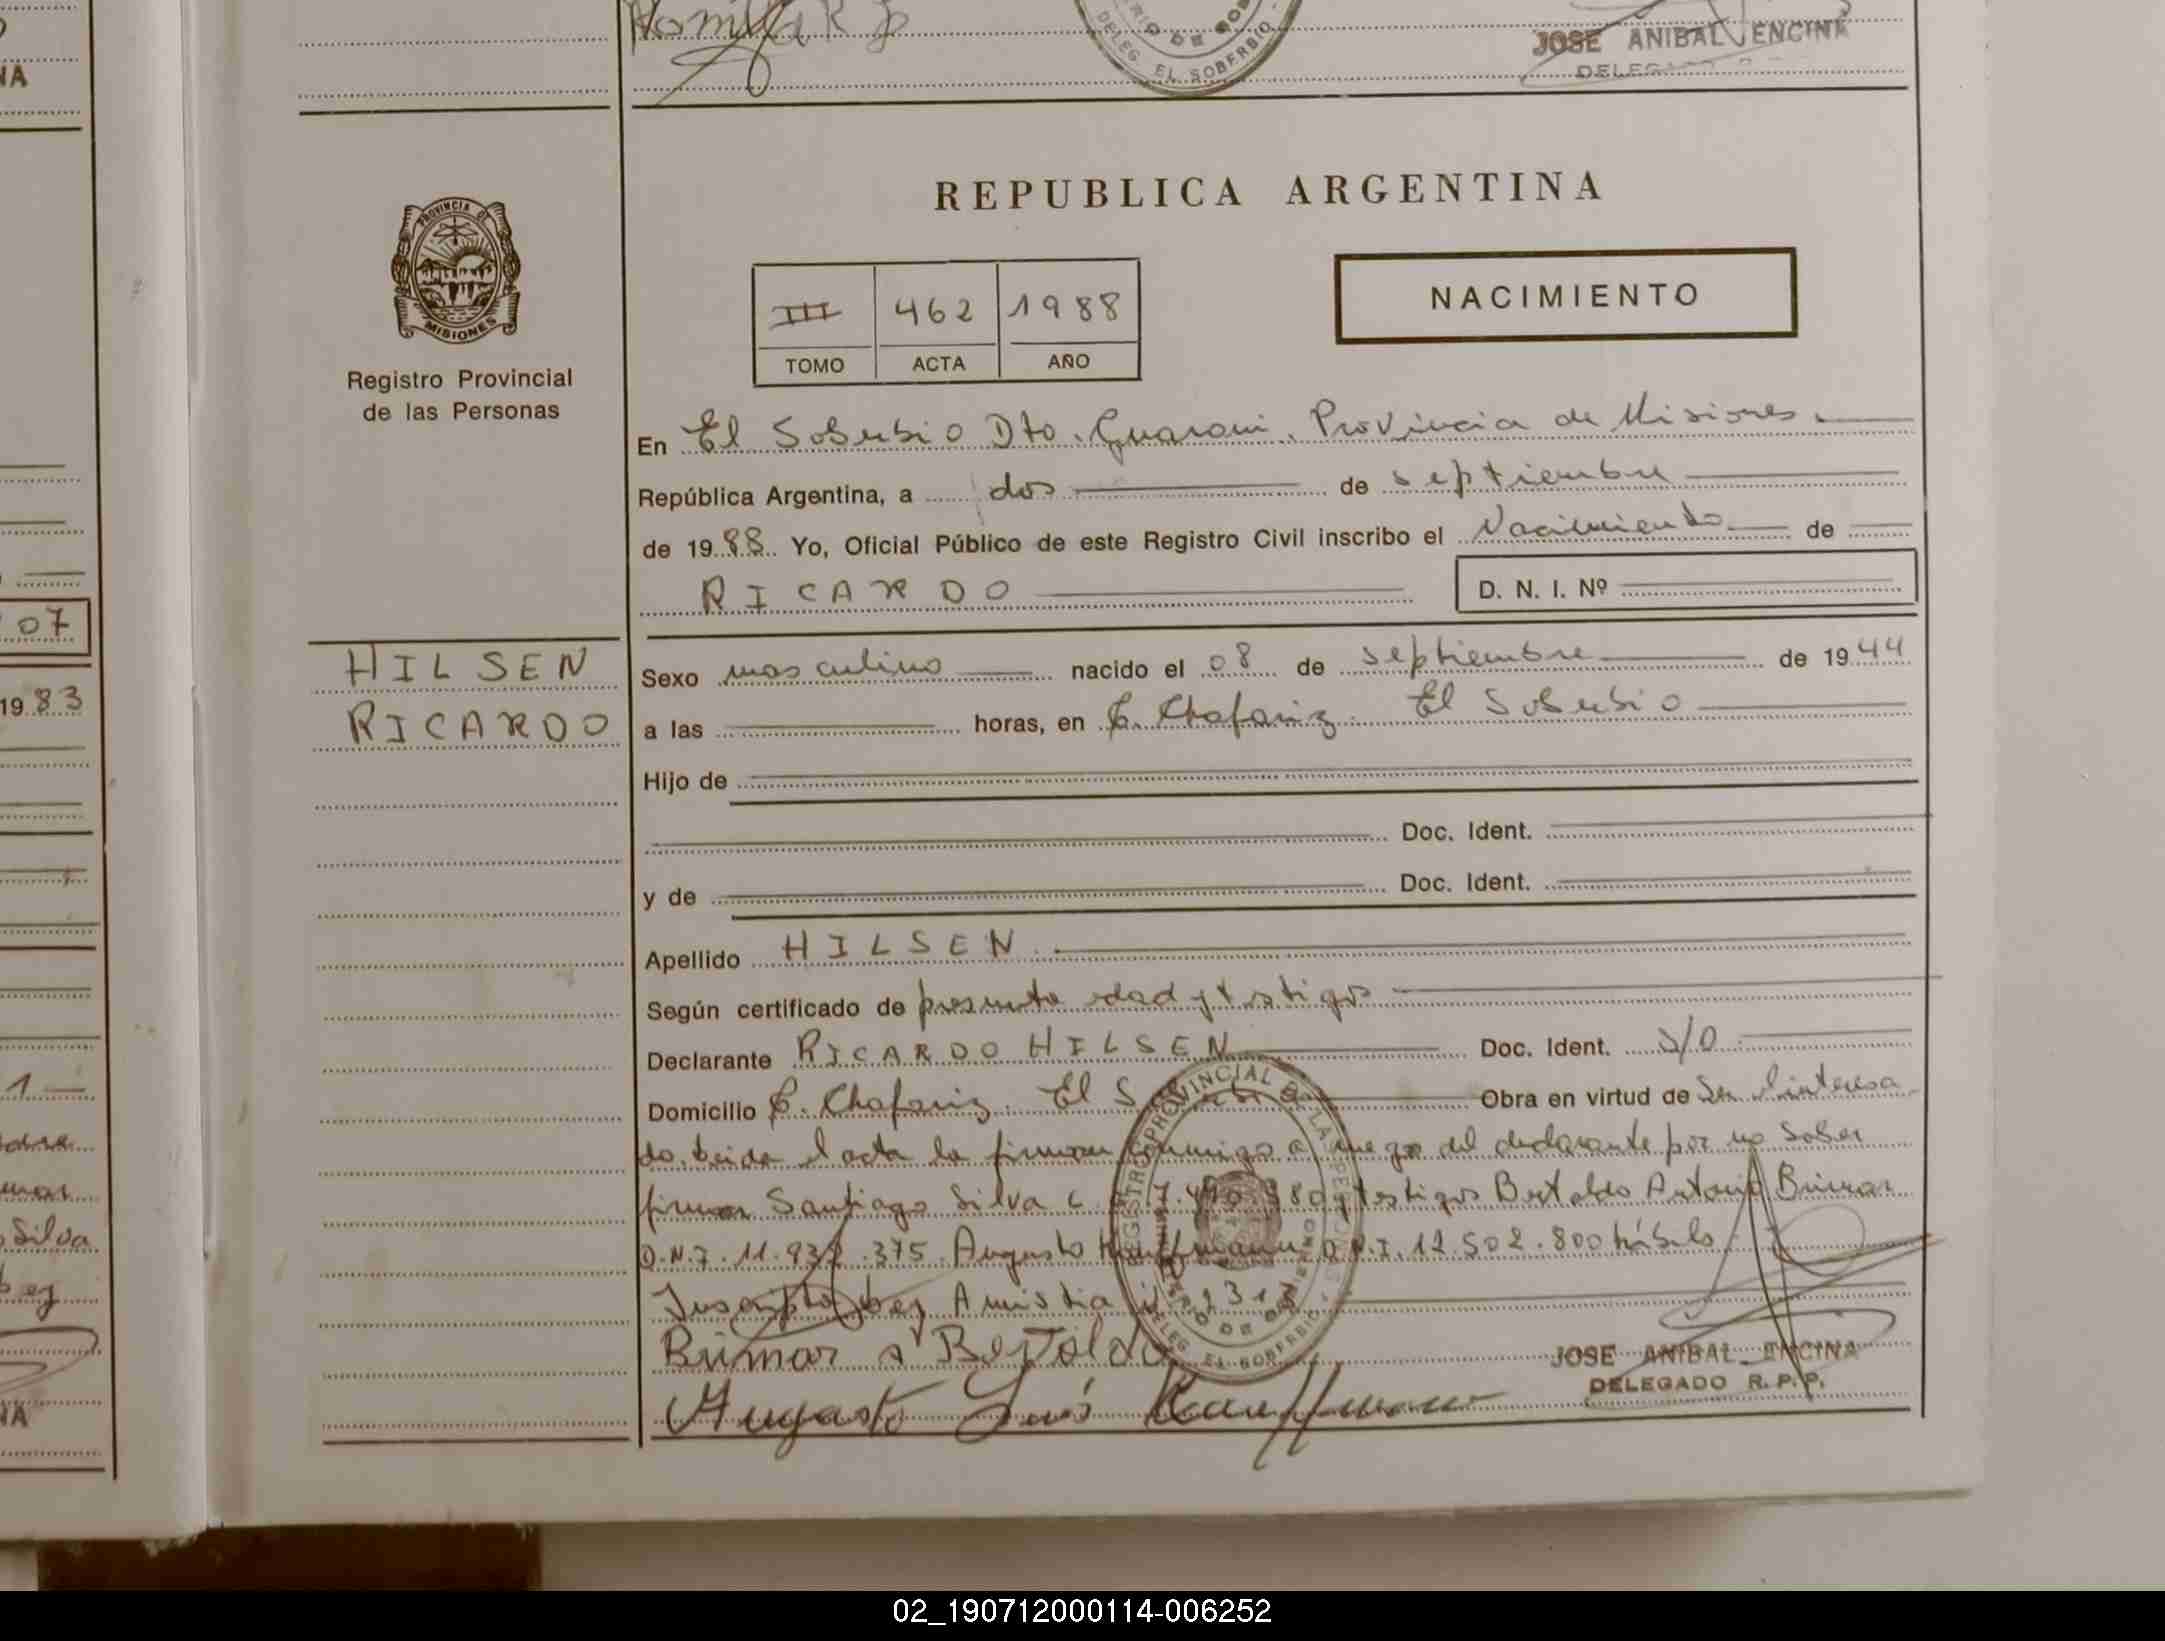 JOSE ANIBAL ENCINA
DELEG. EL SOBERBIO
REPUBLICA ARGENTINA
PROVINCIA DE
MISIONES
Registro Provincial
de las Personas
III 462 1988
TOMO ACTA AÑO
NACIMIENTO
En El Soberbio Dto. Guaraní. Provincia de Misiones.
República Argentina, a dos de septiembre
de 1988. Yo, Oficial Público de este Registro Civil inscribo el Nacimiento de
RICARDO D. N. I. Nº
HILSEN
RICARDO
Sexo masculino nacido el 08 de septiembre de 1944
a las horas, en C. Chafariz. El Soberbio
Hijo de
Doc. Ident.
y de Doc. Ident.
Apellido HILSEN
Según certificado de presunta edad y testigos
Declarante RICARDO HILSEN Doc. Ident. S/D
Domicilio C. Chafariz. El Obra en virtud de Ser el interesa
do. Leida el acta la firman conmigo a ruego del declarante por no saber
firmar Santiago Silva testigos Bertoldo Antonio Brimar
D.N.I. 11.937.375. Augusto Kauffmann D.N.I. 12.502.800 hábiles
Inscripto Ley Amnistia
Brimar A Bertoldo
Augusto Luis Kauffmann
JOSE ANIBAL ENCINA
DELEGADO R. P. P.
07
1983
Silva
02_190712000114-006252